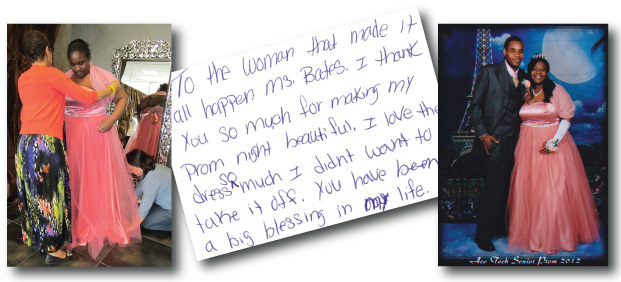 To the woman that made it
all happen Ms. Bates. I thank
you so much for making my
prom night beautiful. I love the
dress so much I didnt want to
take it off. You have been
a big blessing in my life.
Ace Tech Senior Prom 2012